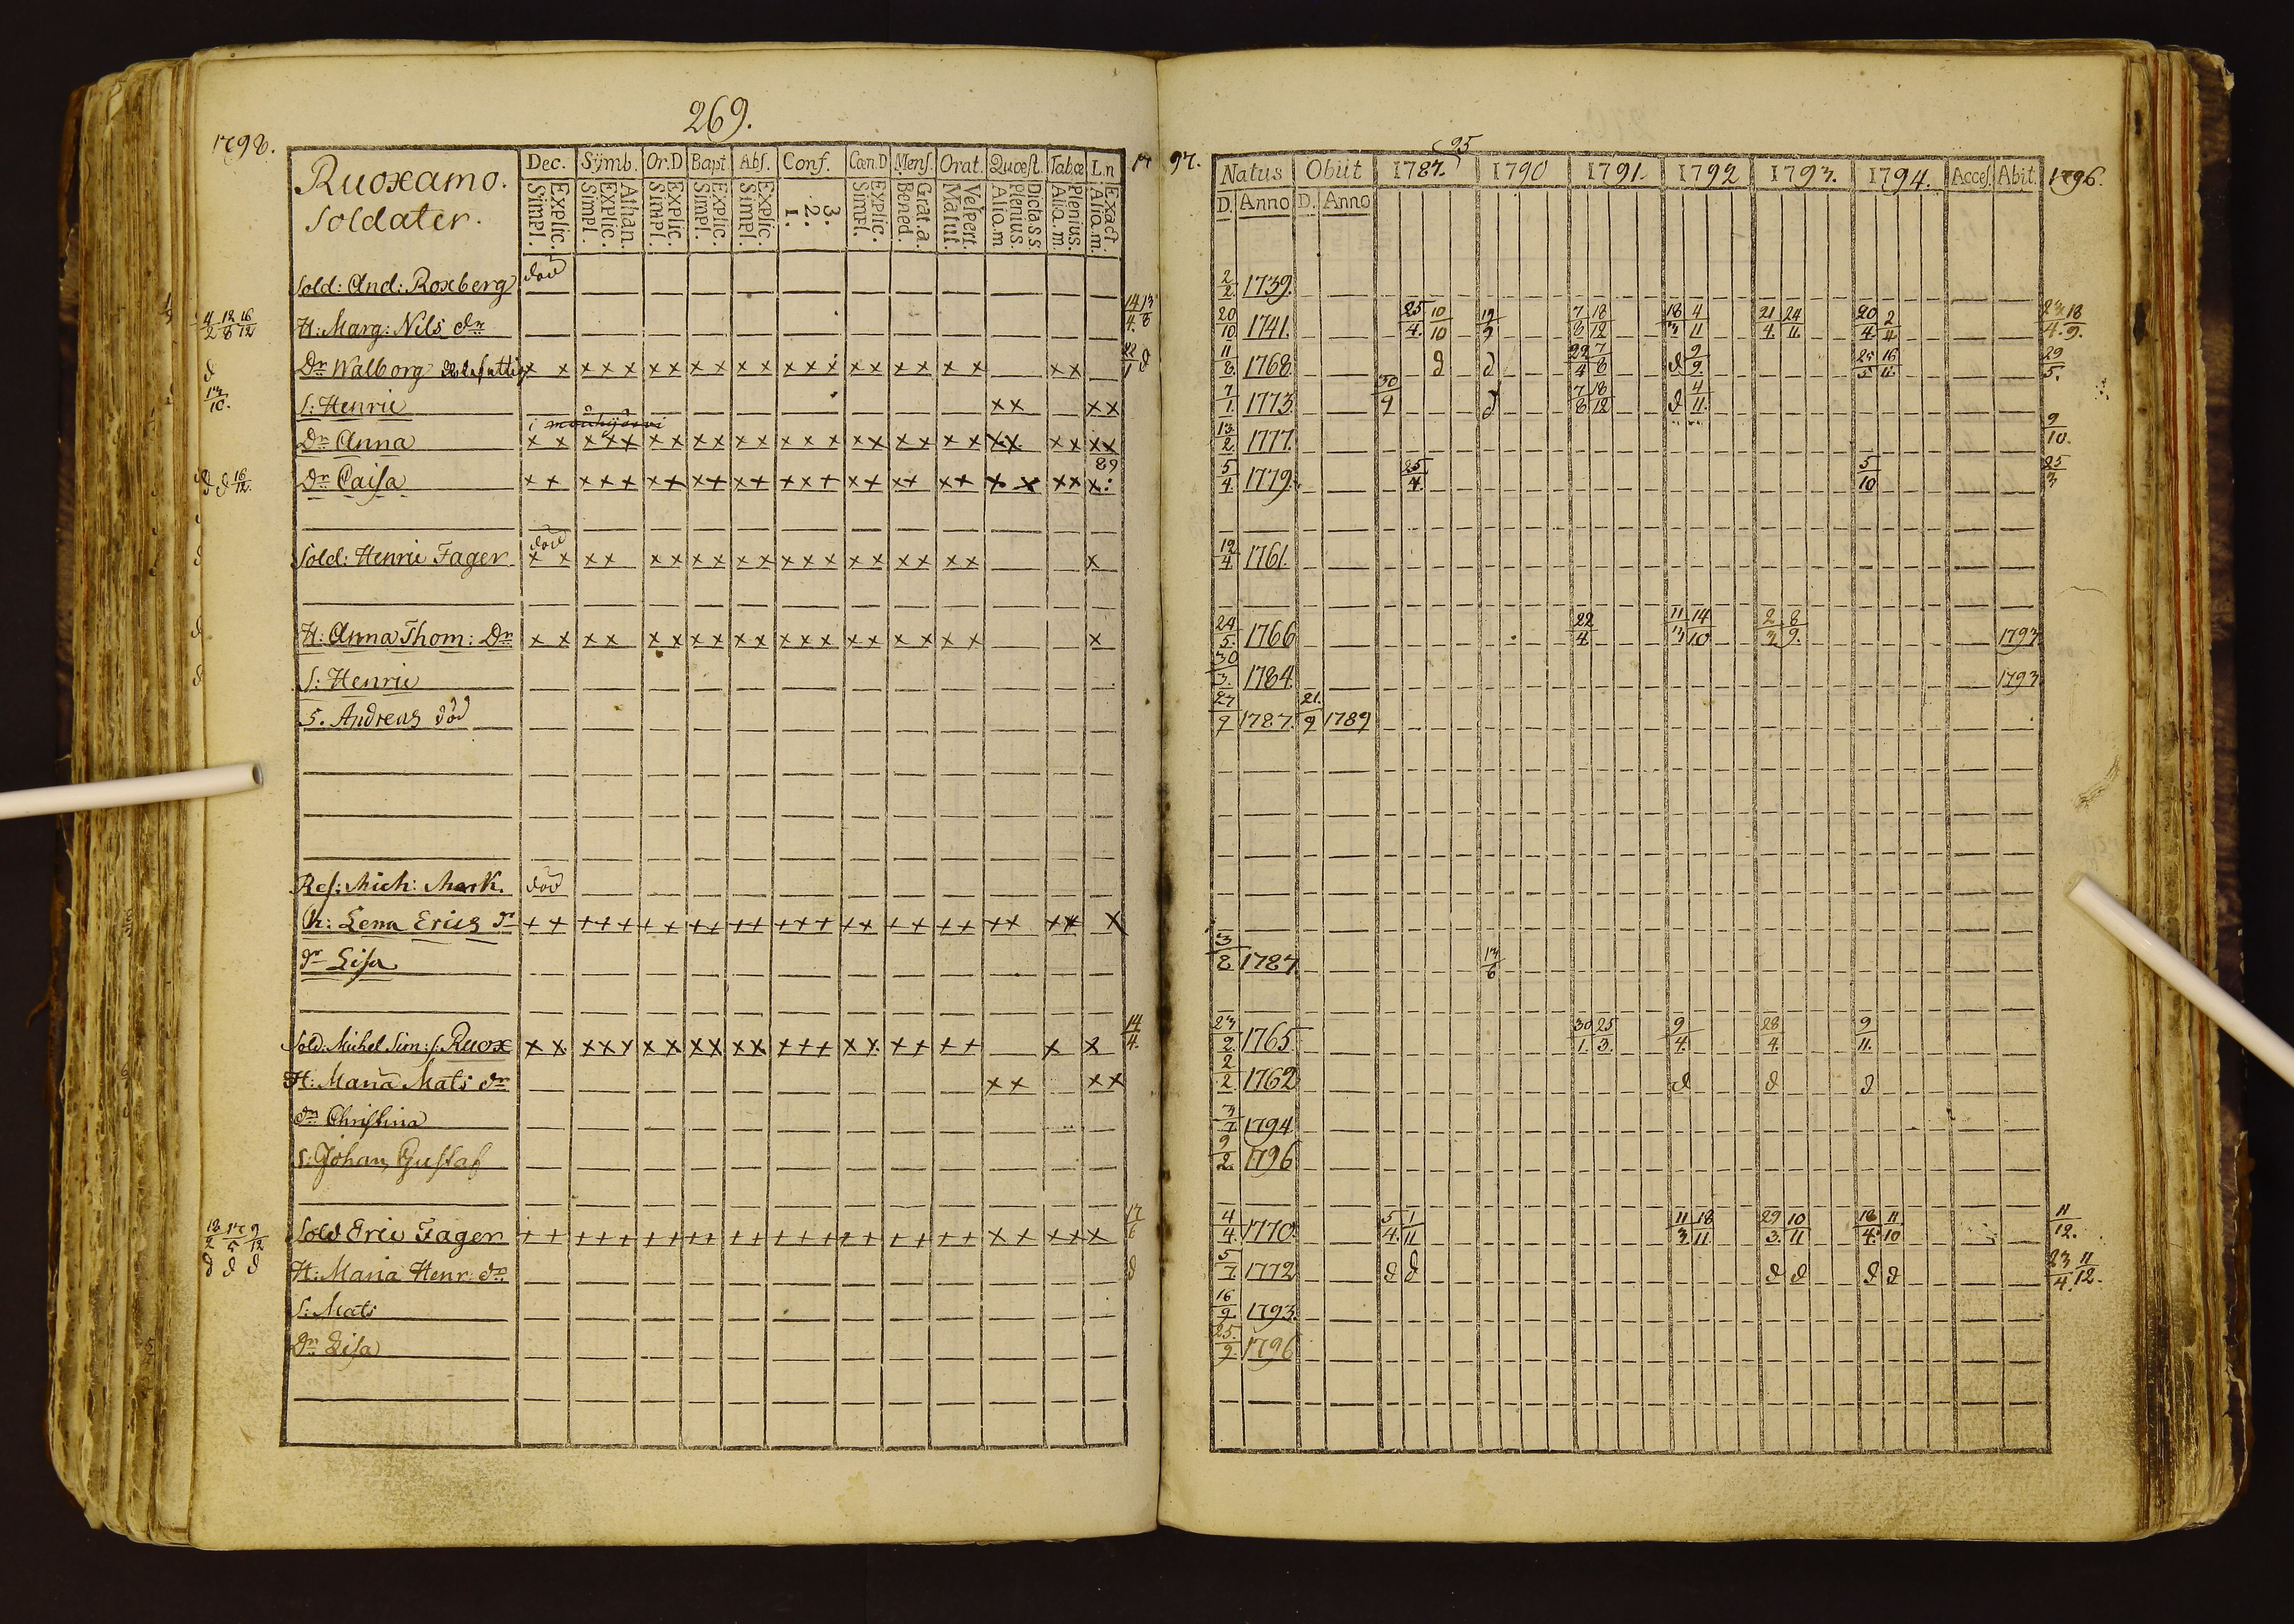 269.
1798.
Ruoxamo.
Soldater.
Dec. Symb. Or.D Bapt Abs. Conf. Cœn.D Mens. Orat. Quæst. Tab.œ L.n
Explic. Simpl. Athan. Explic. Simpl. Explic. Simpl. Explic. Simpl. Explic. Simpl. 3. 2. 1. Explic. Simpl. Grat.a. Bened. Vespert. Matut. Dicta.s.s. Plenius. Aliq.m Plenius. Aliq.m. Exact Aliq.m.
17 97.
Sold: And: Roxberg död
H: Marg: Nils dr
Dr Walborg x x x x x x x x x x x x x x x x x x x x x x
S: Henric x x x x
i
Dr Anna x x x x x x x x x x x x x x x x x x x x x x x x x x
89
Dr Caisa x x x x x x x x x x x x x x x x x x x x x x x x x
död
Sold: Henric Fager x x x x x x x x x x x x x x x x x x x x
H: Anna Thom: Dr x x x x x x x x x x x x x x x x x x x x
S: Henric
S. Andreas död
Res: Mich: Mark. död
h: Lena Erics dr
dr Lisa
Sold: Michel Sim: s. Ruox
H: Maria Mats dr x x x x
dr Christina
S: Johan Gustaf
Sold Eric Fager
H: Maria Henr: dr
S: Mats
Dr Lisa
95
Natus Obiit 1787. 1790 1791. 1792 1793. 1794. Acces. Abit. 1796.
D. Anno D. Anno
2/2 1739.
20/10 1741. 25/4. 10/10 7/8 18/12 18/3 4/11 21/4. 24/11. 20/4 2/4 23/4. 18/9.
11/8. 1768 d d 22/4 7/8 d 9/9. 29/5.
7/1. 1773. 30/9 d 7/8 18/12 d 4/11.
13/2. 1777. 9/10.
5/4. 1779. 25/4. 5/10 25/3
19/4 1761.
24/5. 1766 22/4. 11/3 14/10 2/3 8/9. 1793
30/3. 1784. 1793
27/9 1787. 21./9 1789
3/8 1787 13/6
23/2. 1765 30/1. 25/3. 9/4. 28/4. 9/11.
2/2 1762 d d d
3/7 1794
9/2. 1796
4/4. 1770. 5/4. 1/11 11/3. 18/11. 29/3. 10/11 18/4. 11/10 11/12.
5/7 1772 d d d d d d 23/4. 11/12.
16/9. 1793.
25./9. 1796